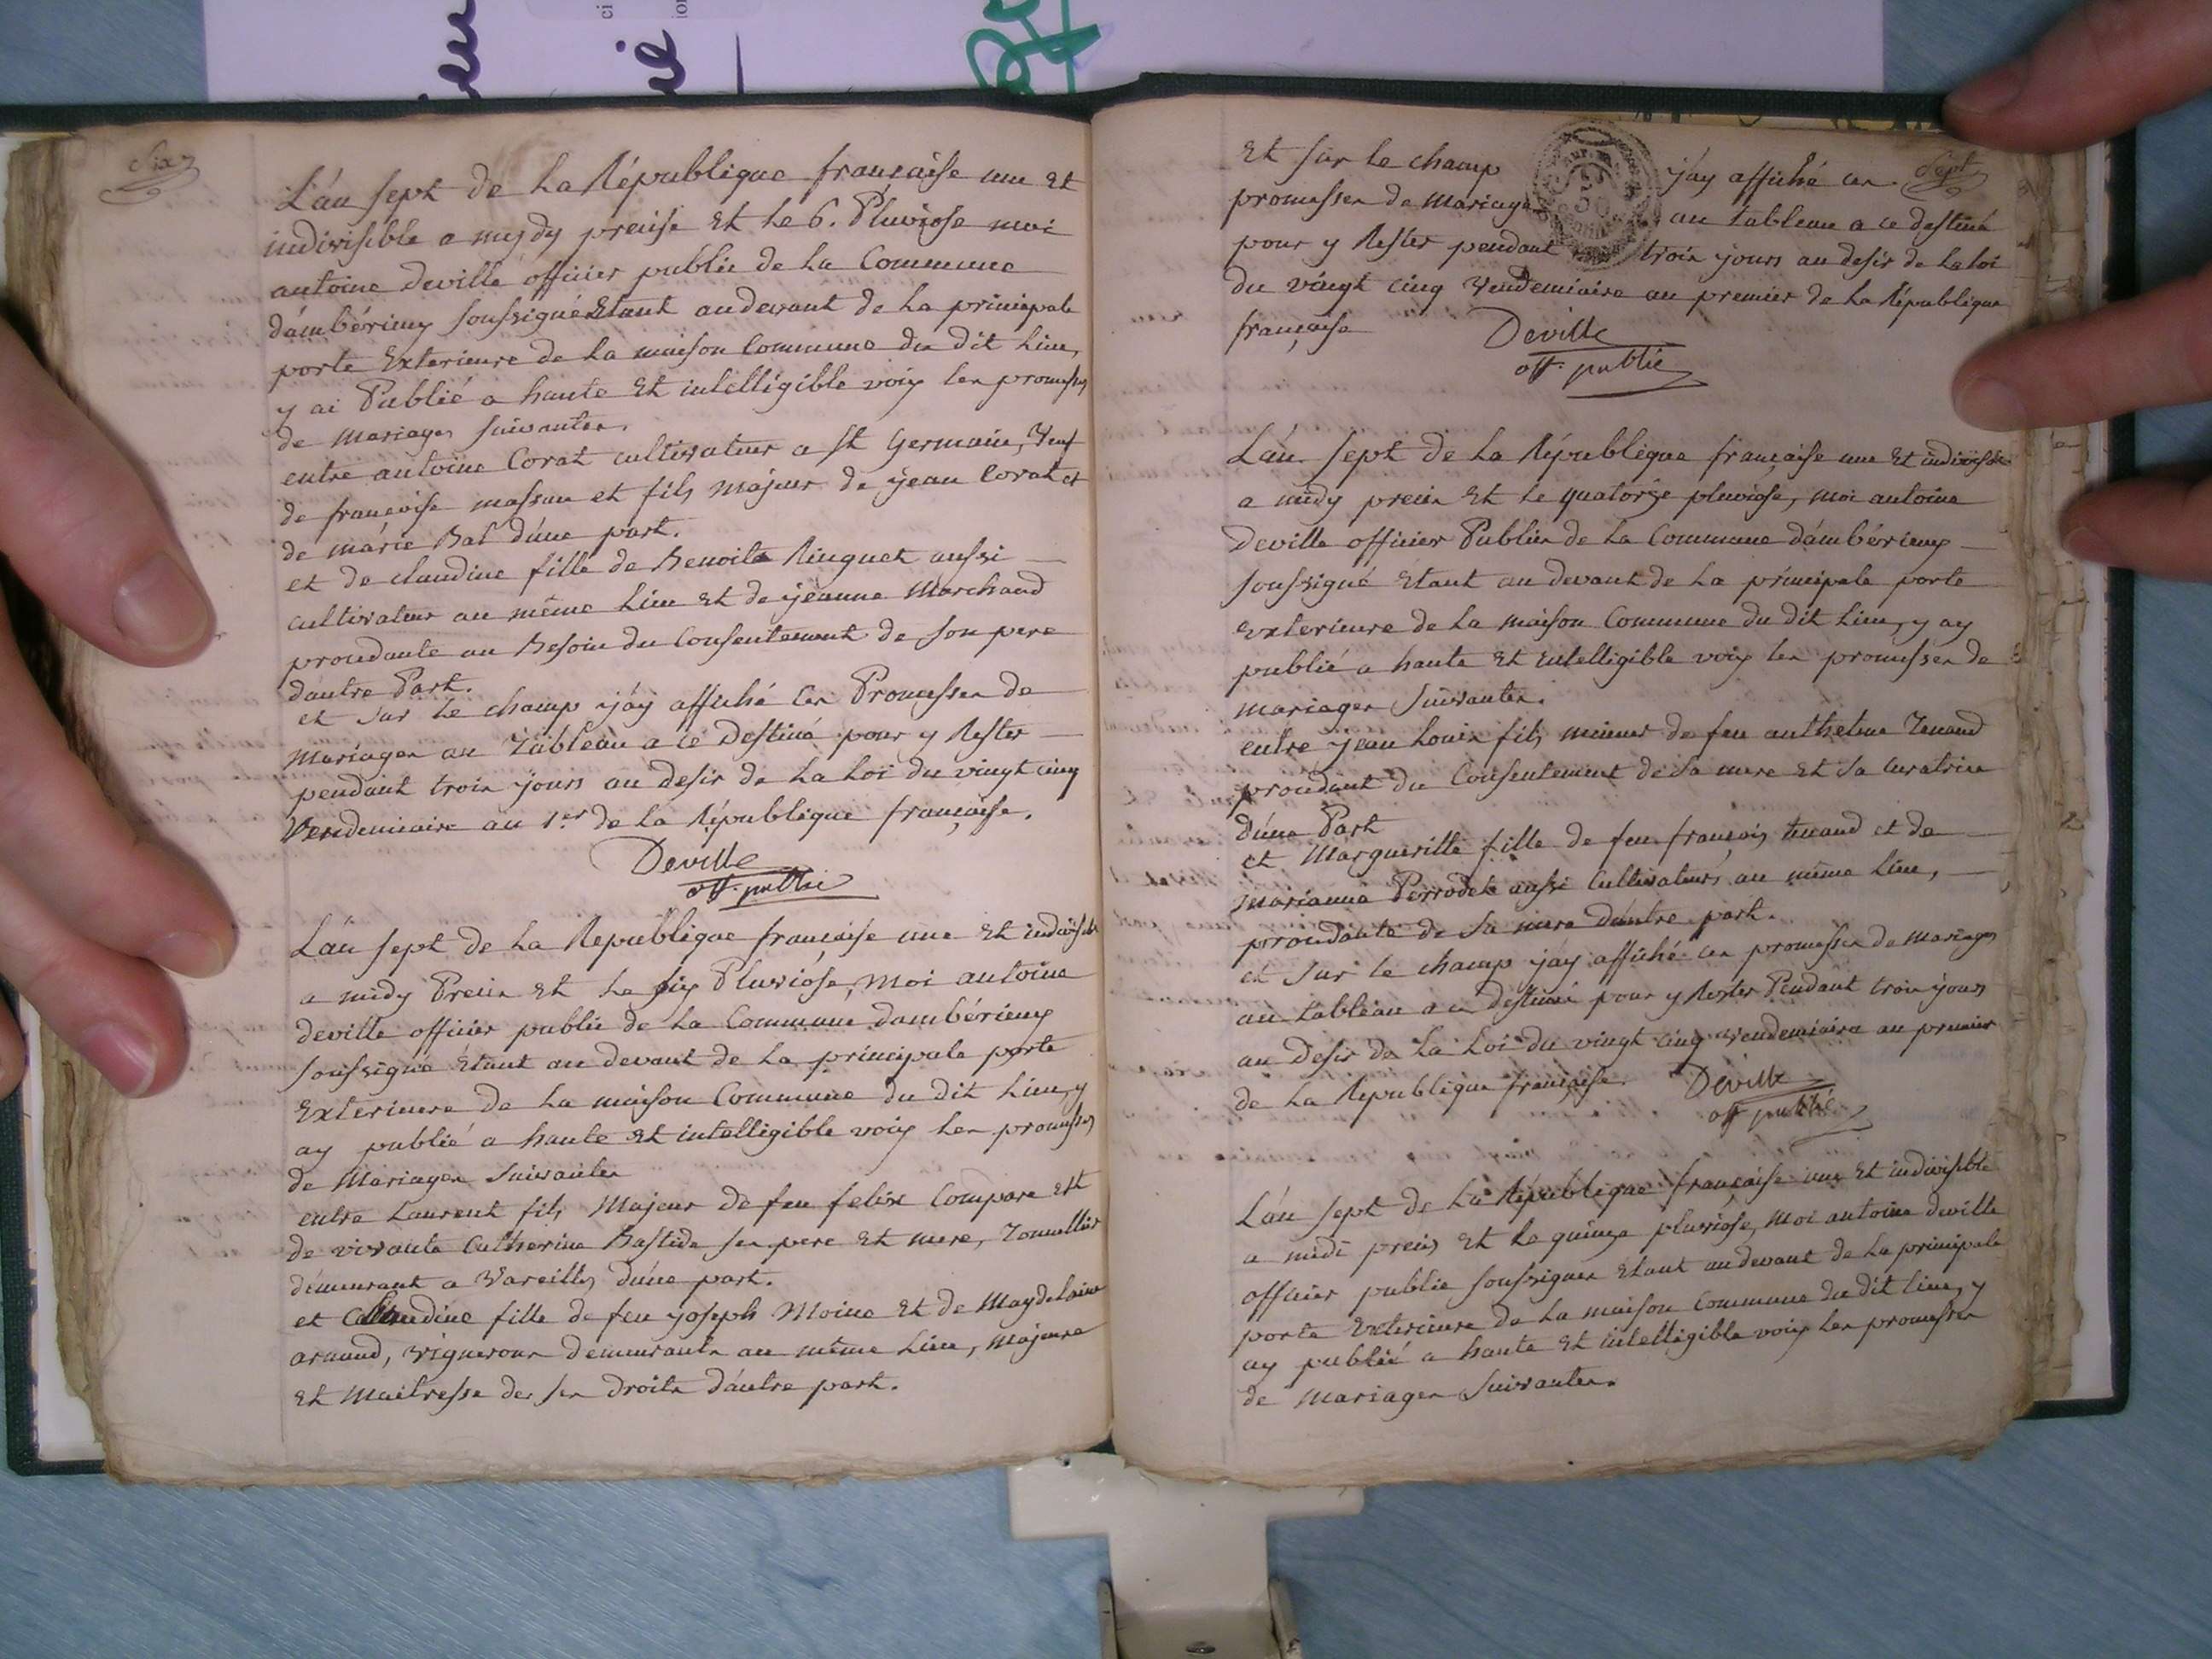 Six
L'an sept de La République francaise une et
indivisible a mydy precise et le 6. Pluviose moi
antoine deville officier public de la Commune
d'ambérieux soussigné Etant au devant de la principale
porte Exterieure de la maison Commune du dit Lieu,
y ai Publié a haute Et intelligible voix les promesses
de Mariages suivantes.
entre antoine Corat cultivateur a St Germain, Veuf
de francoise massau et fils majeur de jean Corat et
de marie Bal d'une part.
et de claudine fille de Benoit Ringuet aussi
cultivateur au même Lieu Et de jeanne Marchand
procedante au Besoin du Consentement de son pere
dautre Part.
et sur le champ j'ay affiché ces Promesses de
Mariages au Tableau a ce Destiné pour y Rester
pendant trois jours au desir de La Loi du vingt cinq
Vendemiaire an 1.er de la République francaise.
Deville
off. public
L'an sept de La Republique francaise une Et indivisible
a midy Precis Et le six Pluviose, moi antoine
deville officier public de la Commune dambérieux
soussigné Etant au devant de la principale porte
Exterieure de la maison Commune du dit Lieu, y
ay publié a haute Et intelligible voix les promesses
de Mariages suivantes
entre Laurent fils Majeur de feu felix Compare Et
de vivante Catherine Bastide ses pere Et mere, Tonnellier
demeurant a Vareilles d'une part.
et Claudine fille de feu joseph Moine Et de Magdelaine
arnaud, vignerons demeurants au même Lieu, Majeure
Et Maitresse de ses Droits d'autre part.
Et sur le champ j'ay affiché ces Sept
promesses de Mariages au tableau a ce destiné
pour y Rester pendant trois jours au desir de la loi
du vingt cinq Vendemiaire an premier de la République
française
Deville
off. public
L'an sept de la République française une Et indivisible
a midy precis Et le quatorze pluviose, moi antoine
Deville officier Public de la Commune d'ambérieux
soussigné Etant au devant de la principale porte
exterieure de la maison Commune du dit Lieu, y ay
publié a haute Et intelligible voix les promesses de
mariages suivantes.
entre jean Louis fils mineur de feu anthelme Tenand
procedant du Consentement de sa mere Et sa Curatrice
d'une Part
et Margueritte fille de feu françois tenand et de
marianne Perrodet aussi Cultivateurs au même Lieu,
procedante de sa mere d'autre part.
et sur le champ j'ay affiché ces promesses de mariages
au tableau a ce destiné pour y Rester Pendant trois jours
au desir de La Loi du vingt cinq vendemiaire an premier
de la République française. Deville
off public
L'an sept de La République française une Et indivisible
a midi precis Et le quinze pluviose, moi antoine deville
officier public soussigner Etant au devant de la principale
porte Exterieure de la maison Commune du dit lieu, y
ay publié a haute Et intelligible voix les promesses
de Mariages suivantes.